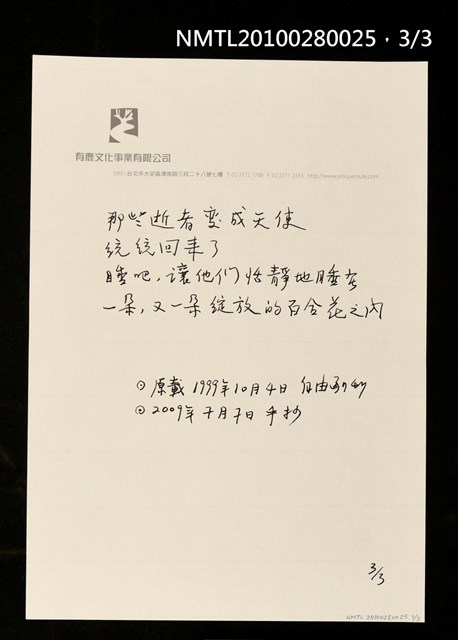 NMTL20100280025，3/3
有鹿文化事業有限公司
台北市大安區濟南路三段二十八號七樓
http://www.uniqueroute.com
那些逝者變成天使
統統回來了
睡吧，讓他們恬靜地睡在
一朵，又一朵綻放的百合花之內
⊙原載 1999年10月4日 自由副刊
⊙2009年7月7日 手抄
3/3
NMTL20100280025. 3/3